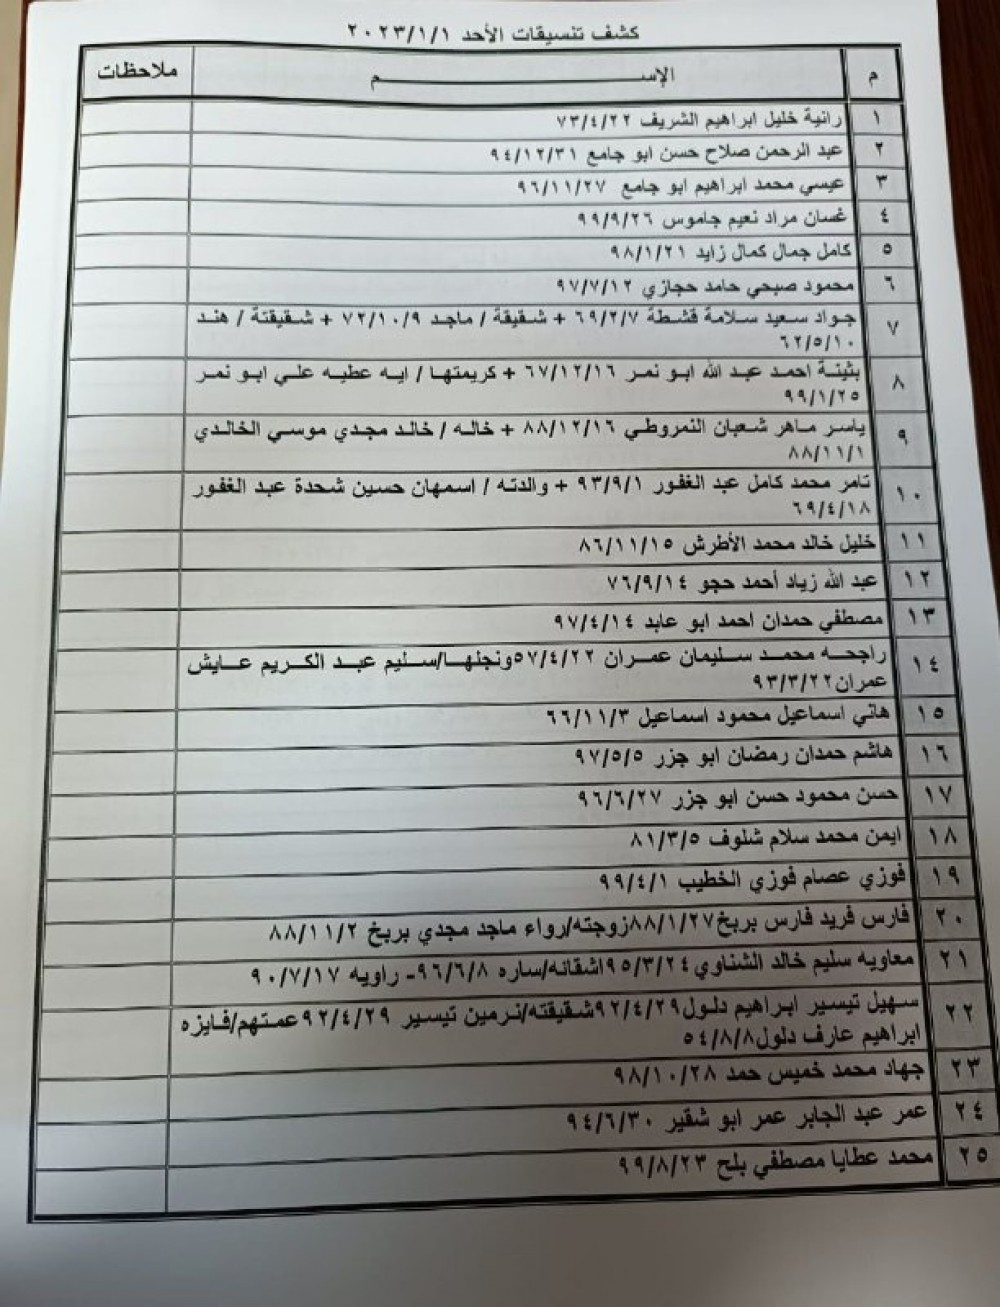 كشف تنسيقات الأحد ٢٠٢٣/١/١
م الإســـــــــم ملاحظات
١ رانية خليل ابراهيم الشريف ٧٣/٤/٢٢
٢ عبد الرحمن صلاح حسن ابو جامع ٩٤/١٢/٣١
٣ عيسي محمد ابراهيم ابو جامع ٩٦/١١/٢٧
٤ غسان مراد نعيم جاموس ٩٩/٩/٢٦
٥ كامل جمال كمال زايد ٩٨/١/٢١
٦ محمود صبحي حامد حجازي ٩٧/٧/١٢
٧ جواد سعيد سلامة قشطة ٦٩/٢/٧ + شقيقة / ماجد ٧٢/١٠/٩ + شقيقتة / هند
٦٢/٥/١٠
٨ بثينة احمد عبد الله ابو نمر ٦٧/١٢/١٦ + كريمتها / ايه عطيه علي ابو نمر
٩٩/١/٢٥
٩ ياسر ماهر شعبان النمروطي ٨٨/١٢/١٦ + خاله / خالد مجدي موسي الخالدي
٨٨/١١/١
١٠ تامر محمد كامل عبد الغفور ٩٣/٩/١ + والدته / اسمهان حسين شحدة عبد الغفور
٦٩/٤/١٨
١١ خليل خالد محمد الأطرش ٨٦/١١/١٥
١٢ عبد الله زياد أحمد حجو ٧٦/٩/١٤
١٣ مصطفي حمدان احمد ابو عابد ٩٧/٤/١٤
١٤ راجحه محمد سليمان عمران ٥٧/٤/٢٢ونجلها/سليم عبد الكريم عايش
عمران٩٣/٣/٢٢
١٥ هاني اسماعيل محمود اسماعيل ٦٦/١١/٣
١٦ هاشم حمدان رمضان ابو جزر ٩٧/٥/٥
١٧ حسن محمود حسن ابو جزر ٩٦/٦/٢٧
١٨ ايمن محمد سلام شلوف ٨١/٣/٥
١٩ فوزي عصام فوزي الخطيب ٩٩/٤/١
٢٠ فارس فريد فارس بربخ٨٨/١/٢٧زوجته/رواء ماجد مجدي بربخ ٨٨/١١/٢
٢١ معاويه سليم خالد الشناوي ٩٥/٣/٢٤اشقانه/ساره ٩٦/٦/٨- راويه ٩٠/٧/١٧
٢٢ سهيل تيسير ابراهيم دلول٩٢/٤/٢٩شقيقته/نرمين تيسير ٩٢/٤/٢٩عمتهم/فايزه
ابراهيم عارف دلول٥٤/٨/٨
٢٣ جهاد محمد خميس حمد ٩٨/١٠/٢٨
٢٤ عمر عبد الجابر عمر ابو شقير ٩٤/٦/٣٠
٢٥ محمد عطايا مصطفي بلح ٩٩/٨/٢٣